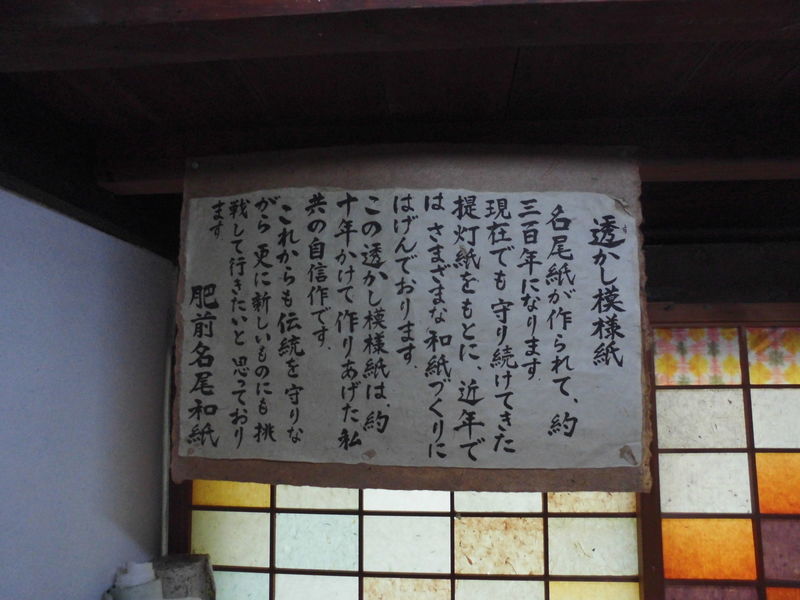 透かし模様紙
名尾紙が作られて、約
三百年になります。
現在でも守り続けてきた
提灯紙をもとに、近年で
は さまざまな和紙づくりに
はげんでおります。
この透かし模様紙は、約
十年かけて作りあげた私
共の自信作です。
これからも伝統を守りな
がら 更に新しいものにも挑
戦して行きたいと 思っており
ます
肥前名尾和紙